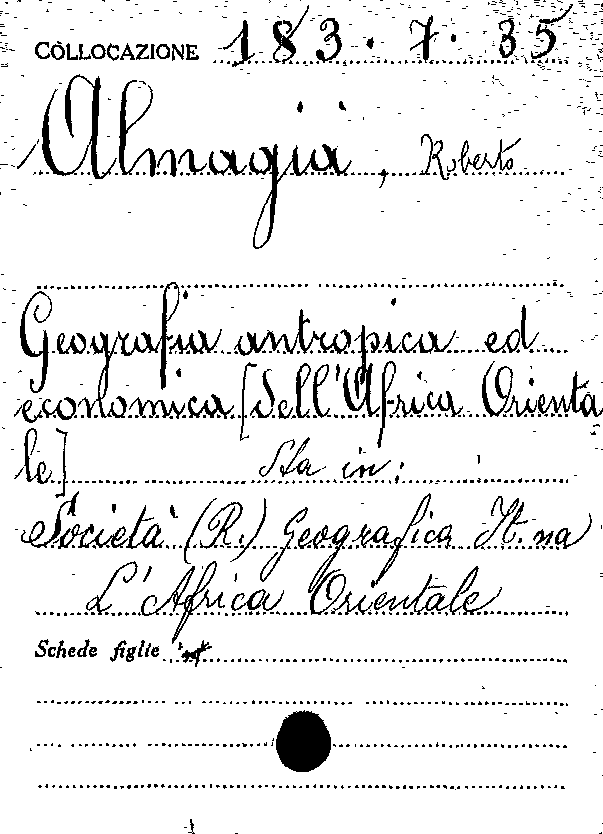 COLLOCAZIONE 183.7.35
Almagià, Roberto
Geografia antropica ed
economica [dell'Africa Orienta
le] Sta in:
Società (R.) Geografica It.na
L'Africa Orientale
Schede figlie